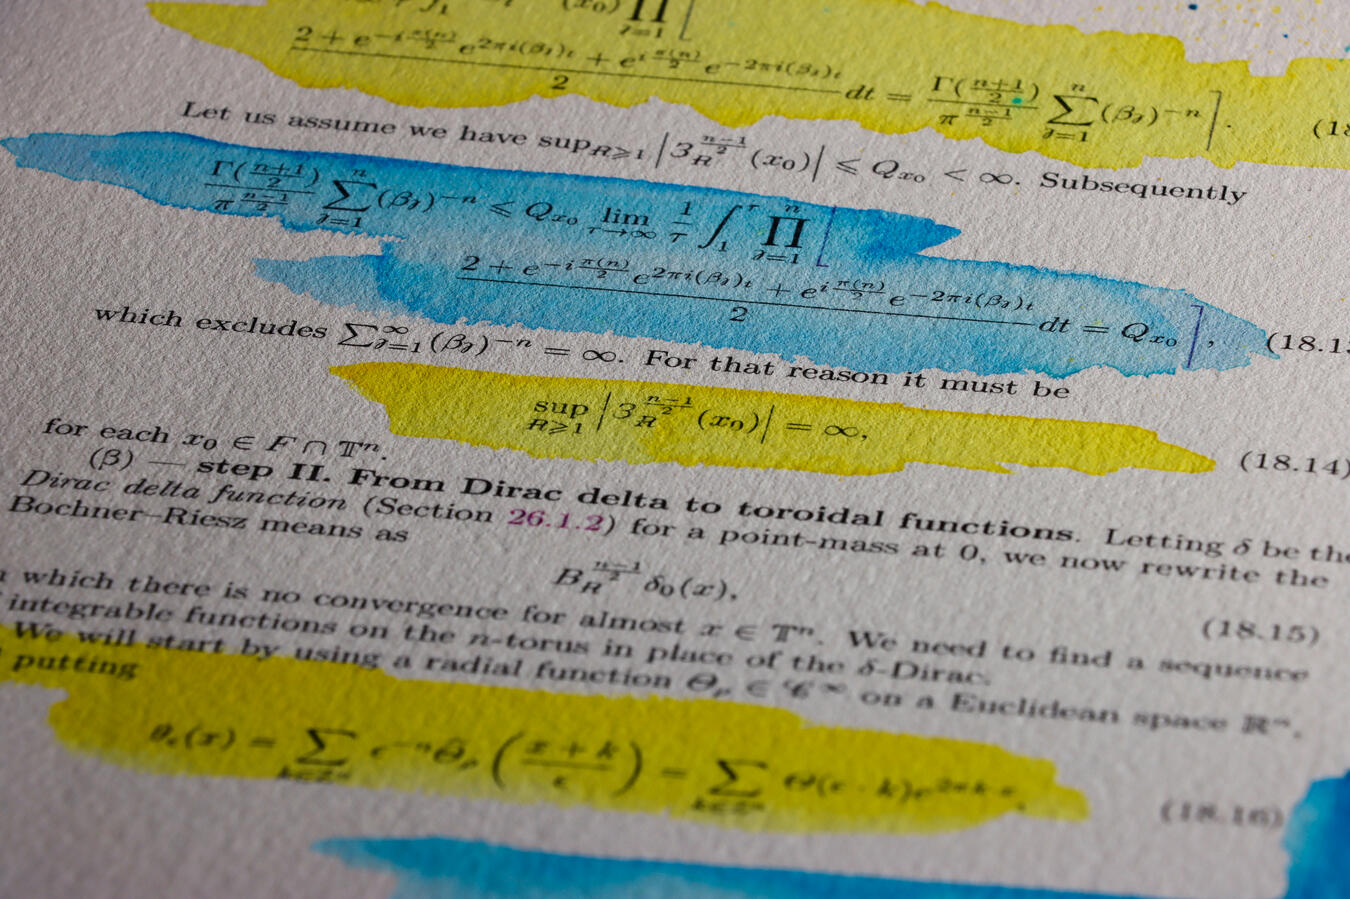 2 + e^{-i\frac{\pi(n)}{2}} e^{2\pi i(\beta_j)t} + e^{i\frac{\pi(n)}{2}} e^{-2\pi i(\beta_j)t} / 2 dt = \frac{Γ(\frac{n+1}{2})}{π^{\frac{n-1}{2}}} ∑_{j=1}^{n} (β_j)^{-n} ].
Let us assume we have sup_{R⩾1} |3_R^{\frac{n-1}{2}}(x_0)| ⩽ Q_{x_0} < ∞. Subsequently
\frac{Γ(\frac{n+1}{2})}{π^{\frac{n-1}{2}}} ∑_{j=1}^{n} (β_j)^{-n} ⩽ Q_{x_0} lim_{τ→∞} \frac{1}{τ} ∫_1^τ ∏_{j=1}^{n} [
2 + e^{-i\frac{\pi(n)}{2}} e^{2\pi i(\beta_j)t} + e^{i\frac{\pi(n)}{2}} e^{-2\pi i(\beta_j)t} / 2 dt = Q_{x_0} ], (18.13
which excludes ∑_{j=1}^{∞} (β_j)^{-n} = ∞. For that reason it must be
sup_{R⩾1} |3_R^{\frac{n-1}{2}}(x_0)| = ∞, (18.14)
for each x_0 ∈ F ∩ 𝕋^n.
(β) — step II. From Dirac delta to toroidal functions. Letting δ be the
Dirac delta function (Section 26.1.2) for a point-mass at 0, we now rewrite the
Bochner–Riesz means as
B_R^{\frac{n-1}{2}} δ_0(x), (18.15)
which there is no convergence for almost x ∈ 𝕋^n. We need to find a sequence
integrable functions on the n-torus in place of the δ-Dirac.
We will start by using a radial function Θ_ρ ∈ 𝒞^∞ on a Euclidean space ℝ^n,
putting
θ_ϵ(x) = ∑_{k∈ℤ^n} ϵ^{-n} Θ̂_ρ (\frac{x+k}{ϵ}) = ∑_{k∈ℤ^n} Θ(ϵ · k) e^{2πk·x}, (18.16)